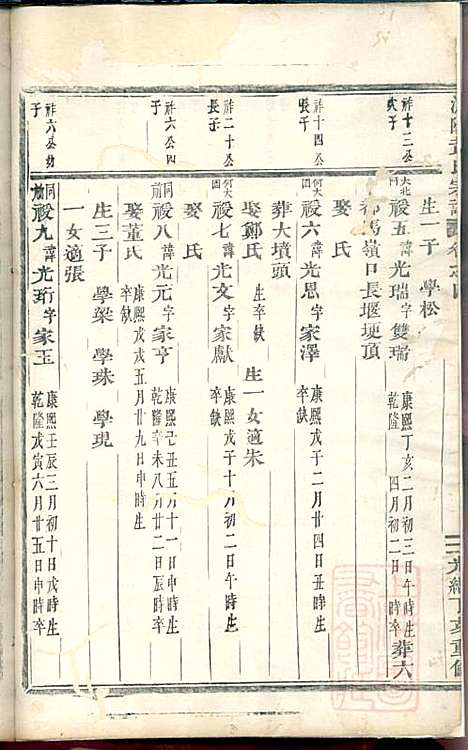 生一子 學松
祚十三公
次子
祾五諱光瑞字雙瑞 康熙丁亥二月初三日午時生
乾隆 四月初二日 時卒 葬六
都馬嶺口長堰埂頂
娶 氏
祚十四公
長子
祾六諱光恩字家澤 康熙戊子二月廿四日丑時生
卒缺
葬大墳頭
娶鄭氏 生卒缺 生一女適朱
祚二十公
長子
祾七諱光文字家獻 康熙戊子十月初二日午時生
卒缺
娶 氏
祚六公四
子
同前 祾八諱光元字家亨 康熙己丑五月十一日子時生
乾隆辛未八月廿二日辰時卒
娶董氏 康熙戊戌五月廿九日申時生
卒缺
生三子 學梁 學珠 學現
一女適張
祚六公幼
子
同前 祾九諱光珩字家玉 康熙壬辰三月初十日戌時生
乾隆戊寅六月廿五日申時卒
光緒丁亥重修